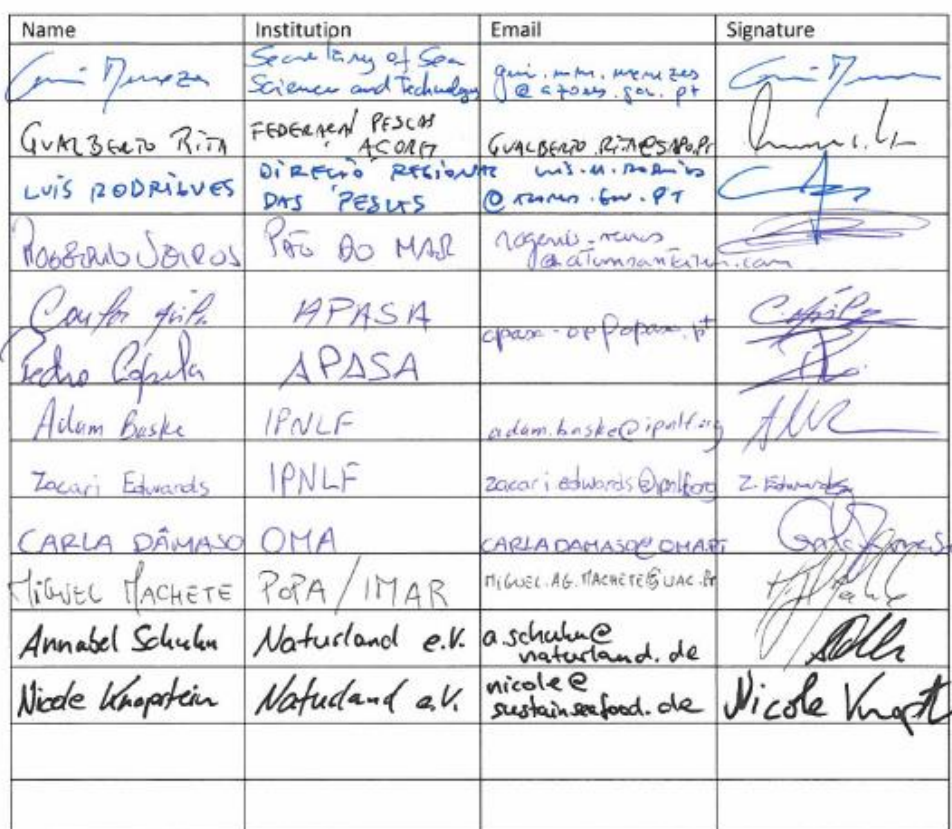 Name Institution Email Signature
Gui Menezes Secretary of Sea
Science and Technology gui.mm.menezes
@azores.gov.pt
GUALBERTO RITA FEDERAÇÃO PESCAS
AÇORES GUALBERTO.RITA@SAPO.PT
LUÍS RODRIGUES DIREÇÃO REGIONAL
DAS PESCAS
ROGÉRIO PÃO DO MAR
APASA
Pedro Capela APASA apasa-op@apasa.pt
Adam Baske IPNLF adam.baske@ipnlf.org
Zacari Edwards IPNLF zacari.edwards@ipnlf.org Z. Edwards
CARLA DÂMASO OMA CARLADAMASO@OMA.PT
MIGUEL MACHETE POPA/IMAR MIGUEL.AG.MACHETE@UAC.PT
Annabel Schuhn Naturland e.V. a.schuhn@
naturland.de
Nicole Knapstein Naturland e.V. nicole@
sustainseafood.de Nicole Knapst